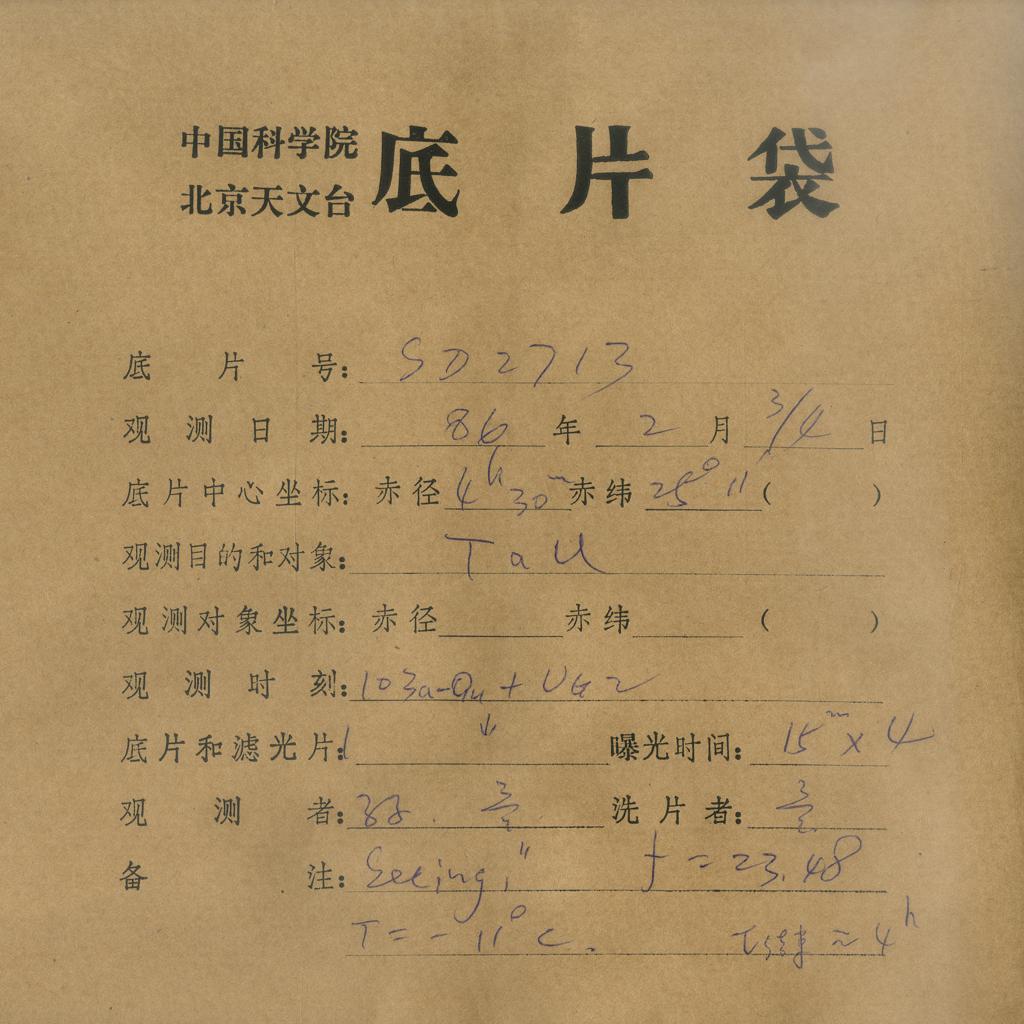 中国科学院
北京天文台
底片袋
底片号: SD2713
观测日期: 86年 2月 3/4日
底片中心坐标: 赤径 4h30m 赤纬 25°11 ( )
观测目的和对象: Tau
观测对象坐标: 赤径 赤纬 ( )
观测时刻: 103a-O + UG2
底片和滤光片: 曝光时间: 15m×4
观测者: 洗片者:
备注: Seeing 1" f=23.48
T=-11°C. T结束≈4h